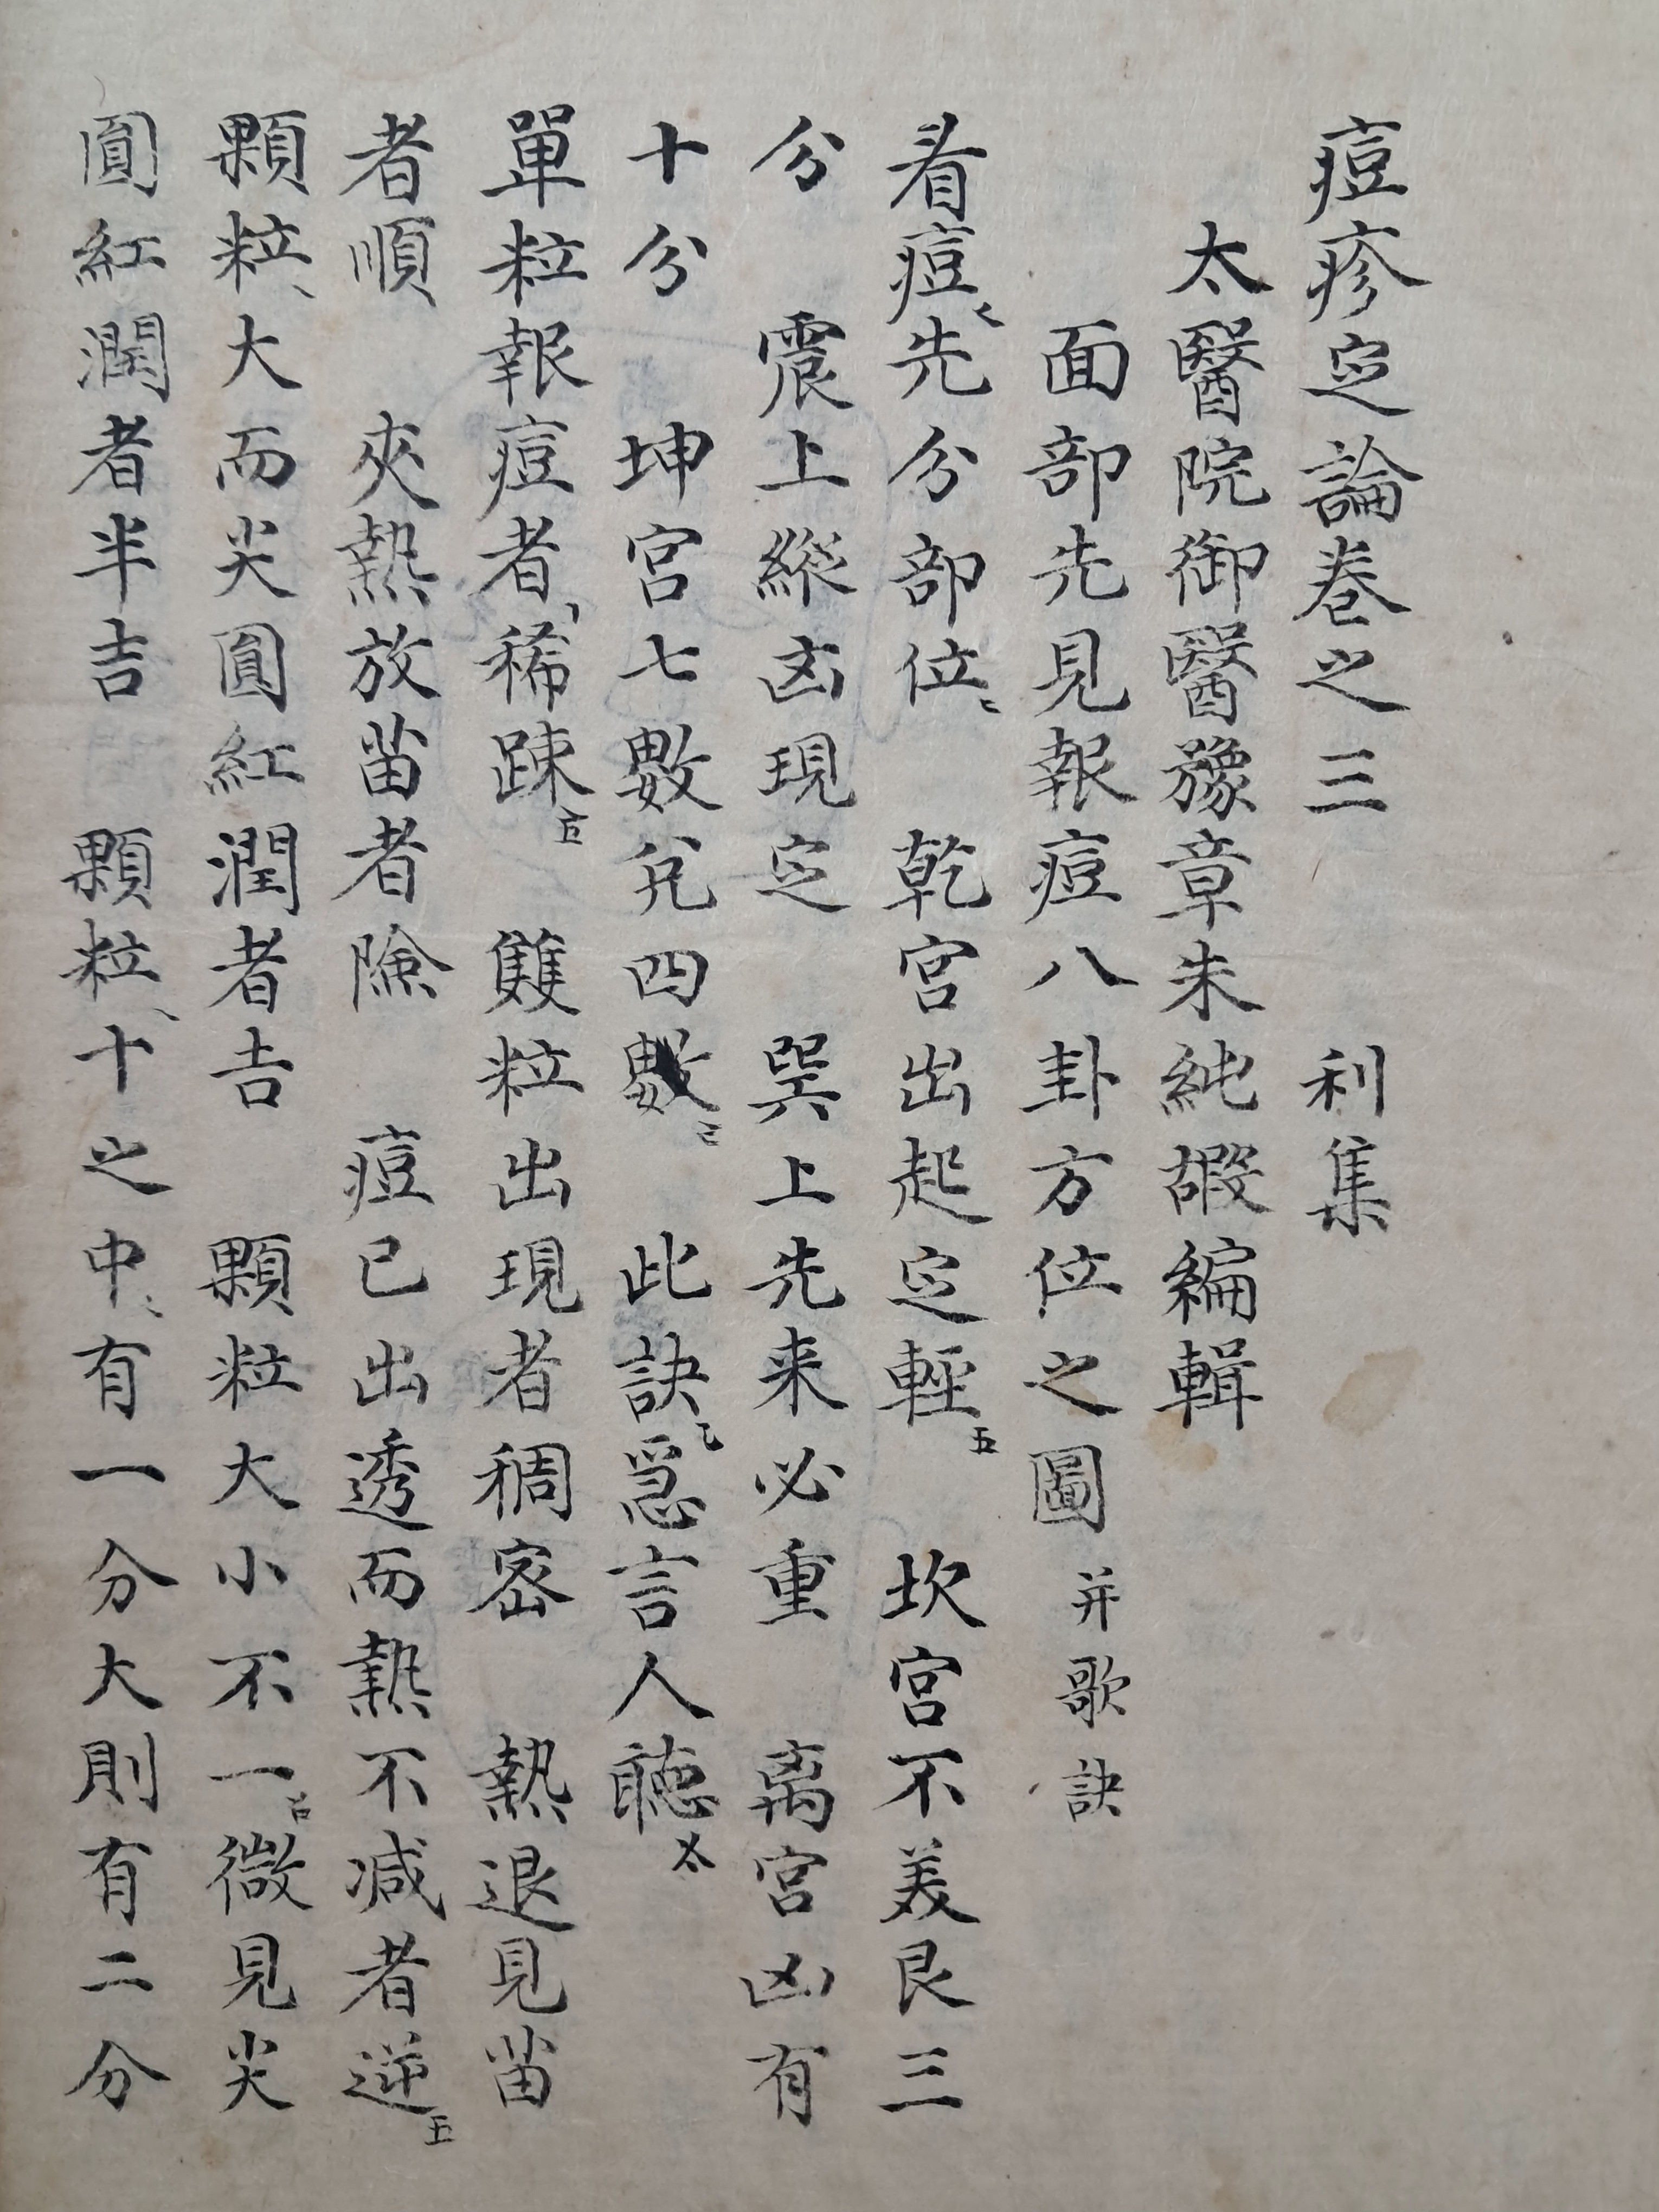 痘疹定論卷之三　　利集
太醫院御醫豫章朱純嘏編輯
面部先見報痘八卦方位之圖并歌訣
看痘先分部位　乾宮出起定輕　坎宮不美艮三
分　震上縱凶現定　巽上先来必重　离宮凶有
十分　坤宮七數兌四數　此訣急言人聽
單粒報痘者稀踈　雙粒出現者稠密　熱退見苗
者順　夾熱放苗者險　痘已出透而熱不減者逆
顆粒大而尖圓紅潤者吉　顆粒大小不一微見尖
圓紅潤者半吉　顆粒十之中有一分大則有二分